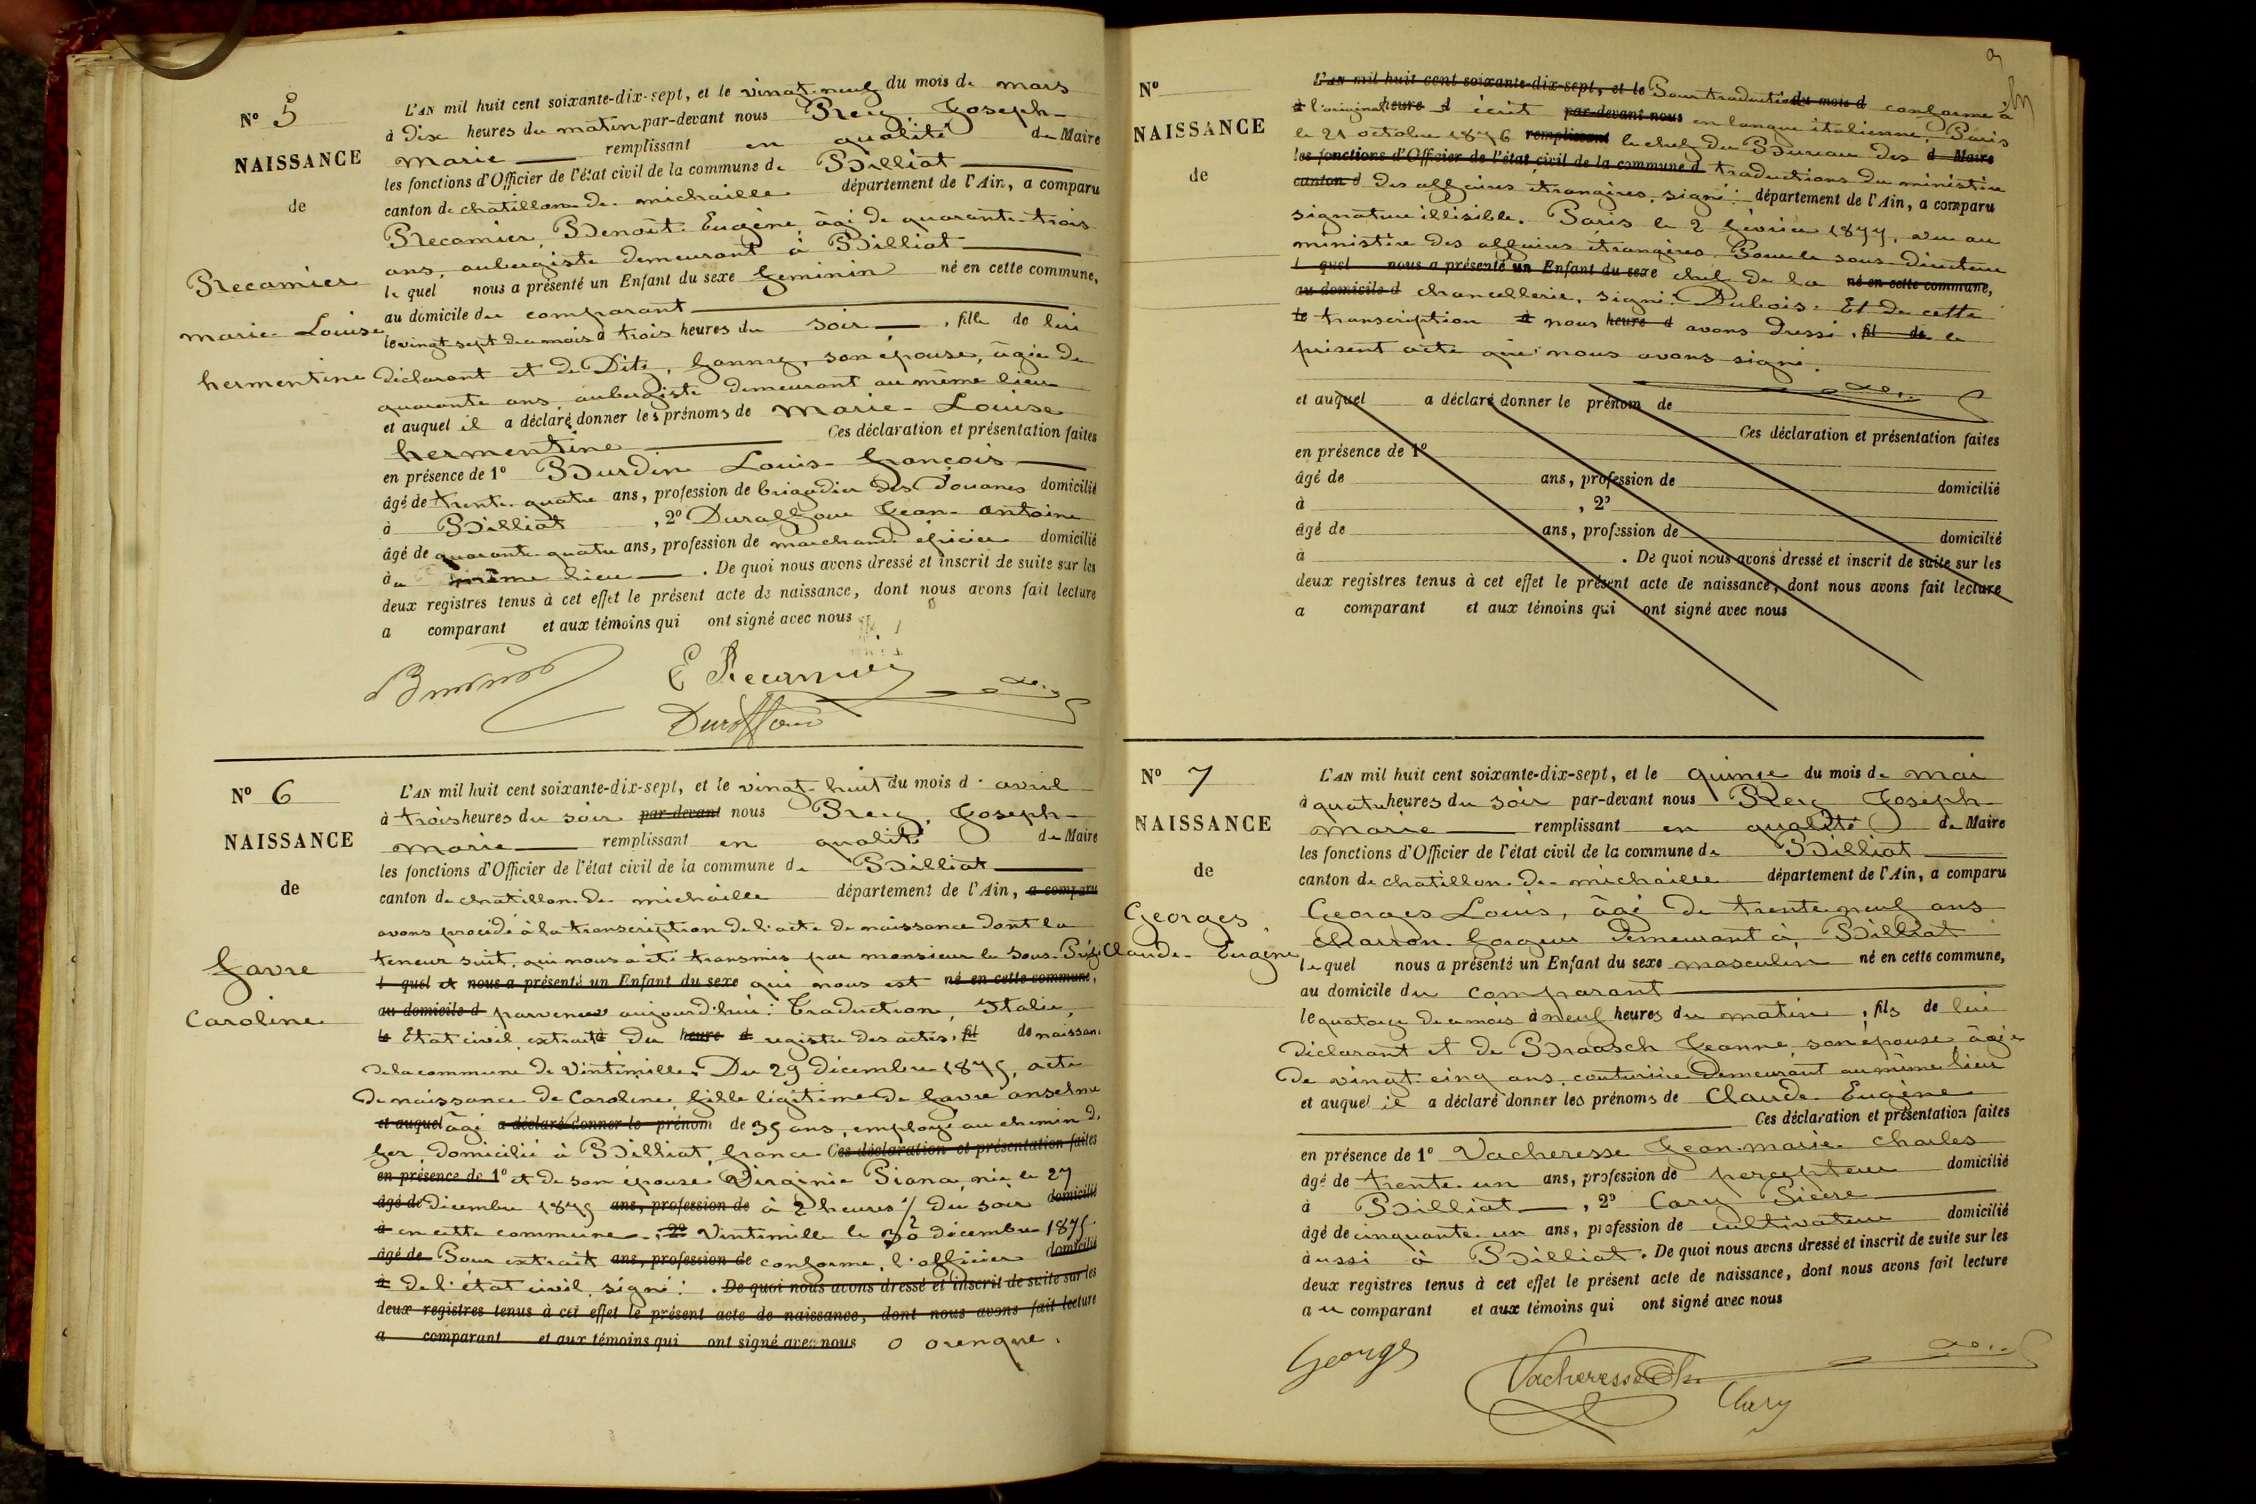 N° 5
NAISSANCE
de
Recamier
marie-Louise
hermentine
L'AN mil huit cent soixante-dix-sept, et le vingt-neuf du mois de mars
à dix heures du matin par-devant nous Rey, Joseph-
marie remplissant en qualité de Maire
les fonctions d'Officier de l'état civil de la commune de Billiat
canton de chatillon-de-michaille département de l'Ain, a comparu
Recamier, Benoit Eugène, âgé de quarante-trois
ans, aubergiste demeurant à Billiat
le quel nous a présenté un Enfant du sexe féminin né en cette commune,
au domicile du comparant
le vingt sept du mois à trois heures du soir, fille de lui
déclarant et de Dité, fanny, son épouse, âgée de
quarante ans, aubergiste demeurant au même lieu
et auquel il a déclaré donner les prénoms de Marie-Louise
hermentine Ces déclaration et présentation faites
en présence de 1° Burdin Louis-françois
âgé de trente-quatre ans, profession de brigadier des Douanes domicilié
à Billiat, 2° Duraffour Jean-antoine
âgé de quarante-quatre ans, profession de marchand épicier domicilié
au même lieu. De quoi nous avons dressé et inscrit de suite sur les
deux registres tenus à cet effet le présent acte de naissance, dont nous avons fait lecture
a comparant et aux témoins qui ont signé avec nous
E Recamier
Duraffour
N° 6
NAISSANCE
de
favre
Caroline
L'AN mil huit cent soixante-dix-sept, et le vingt-huit du mois d'avril
à trois heures du soir par-devant nous Rey, Joseph-
marie remplissant en qualité de Maire
les fonctions d'Officier de l'état civil de la commune de Billiat
canton de chatillon-de-michaille département de l'Ain, a comparu
avons procédé à la transcription de l'acte de naissance dont la
teneur suit, qui nous a été transmis par monsieur le Sous-Préfet
l quel et nous a présenté un Enfant du sexe qui nous est né en cette commune,
au domicile d parvenu aujourd'hui: Traduction, Italie,
le Etat civil, extrait à du heure d registre des actes, fil de naissance
de la commune de Vintimille. Du 29 décembre 1875, acte
de naissance de Caroline, fille légitime de favre anselme
et auquel âgé a déclaré donner le prénom de 35 ans, employé au chemin de
fer, domicilié à Billiat, france Ces déclaration et présentation faites
en présence de 1° et de son épouse Virginie Piana, née le 27
âgé de Décembre 1875 ans, profession de à 2 heures 1/2 du soir domicilié
à en cette commune, 2° Vintimille le 30 décembre 1875.
âgé de Pour extrait ans, profession de conforme, l'officier domicilié
à de l'état civil, signé: . De quoi nous avons dressé et inscrit de suite sur les
deux registres tenus à cet effet le présent acte de naissance, dont nous avons fait lecture
a comparant et aux témoins qui ont signé avec nous O orengue.
9
N°
NAISSANCE
de
L'AN mil huit cent soixante-dix-sept, et le Pour traduction du mois d conforme à
à l'original heure d écrit par-devant nous en langue italienne, Paris
le 21 octobre 1876 remplissant le chef du Bureau des d Maire
les fonctions d'Officier de l'état civil de la commune d traductions du ministère
canton d des affaires étrangères, signé: département de l'Ain, a comparu
signature illisible. Paris le 2 février 1877, vu au
ministère des affaires étrangères Pour le sous-directeur
l quel nous a présenté un Enfant du sexe chef de la né en cette commune,
au domicile d chancellerie, signé: Dubois. Et de cette
le transcription à nous heure d avons dressé, fil de le
présent acte que nous avons signé.
et auquel a déclaré donner le prénom de
Ces déclaration et présentation faites
en présence de 1°
âgé de ans, profession de domicilié
à , 2°
âgé de ans, profession de domicilié
à . De quoi nous avons dressé et inscrit de suite sur les
deux registres tenus à cet effet le présent acte de naissance, dont nous avons fait lecture
a comparant et aux témoins qui ont signé avec nous
N° 7
NAISSANCE
de
Georges
Claude-Eugène
L'AN mil huit cent soixante-dix-sept, et le quinze du mois de mai
à quatre heures du soir par-devant nous Rey Joseph-
marie remplissant en qualité de Maire
les fonctions d'Officier de l'état civil de la commune de Billiat
canton de chatillon-de-michaille département de l'Ain, a comparu
Georges Louis, âgé de trente-neuf ans
charron-forgeur demeurant à Billiat
le quel nous a présenté un Enfant du sexe masculin né en cette commune,
au domicile du comparant
le quatorze du mois à neuf heures du matin, fils de lui
déclarant et de Braasch Jeanne, son épouse, âgée
de vingt-cinq ans, couturière demeurant au même lieu
et auquel il a déclaré donner les prénoms de Claude-Eugène
Ces déclaration et présentation faites
en présence de 1° Vacheresse Jean-marie-charles
âgé de trente-un ans, profession de percepteur domicilié
à Billiat, 2° Cary
âgé de cinquante-un ans, profession de cultivateur domicilié
aussi à Billiat. De quoi nous avons dressé et inscrit de suite sur les
deux registres tenus à cet effet le présent acte de naissance, dont nous avons fait lecture
au comparant et aux témoins qui ont signé avec nous
Georges
Vacheresse Ch.
Cary